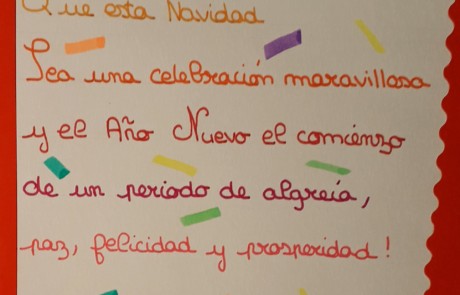 Que esta Navidad
Sea una celebración maravillosa
y el Año Nuevo el comienzo
de un periodo de algreía,
paz, felicidad y prosperidad!